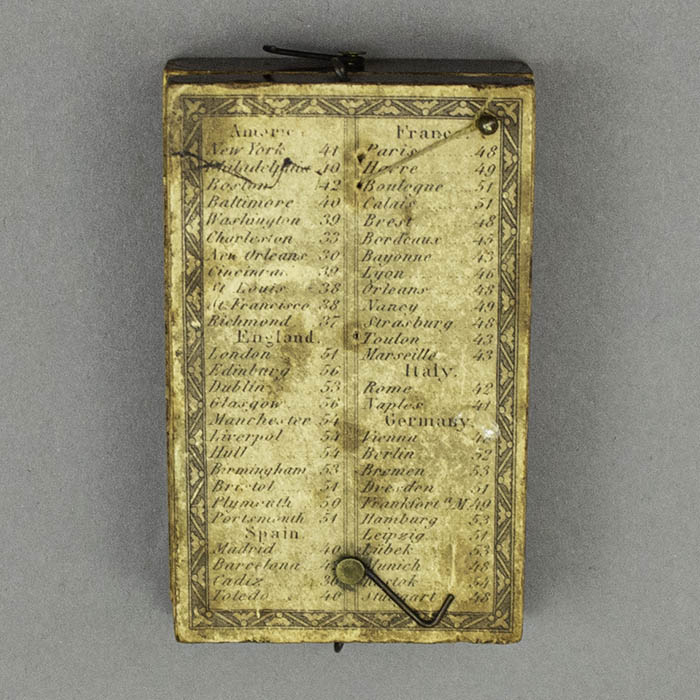 America
New York 41
Philadelphia 40
Boston 42
Baltimore 40
Washington 39
Charleston 33
New Orleans 30
Cincinnat 39
St Louis 38
St Francisco 38
Richmond 37
England.
London 51
Edinburg 56
Dublin 53
Glasgow 56
Manchester 54
Liverpol 54
Hull 54
Birmingham 53
Bristol 51
Plymouth 50
Portsmouth 51
Spain
Madrid 40
Barcelona
Cadiz
Toledo 40
France.
Paris 48
Havre 49
Boulogne 51
Calais 51
Brest 48
Bordeaux 45
Bayonne 43
Lyon 46
Orleans 48
Nancy 49
Strasburg 48
Toulon 43
Marseille 43
Italy.
Rome 42
Naples 41
Germany.
Vienna
Berlin 52
Bremen 53
Dresden 51
Frankfort a M 49
Hamburg 53
Leipzig 51
Lübek 53
Munich 48
Rostok 54
Stuttgart 48